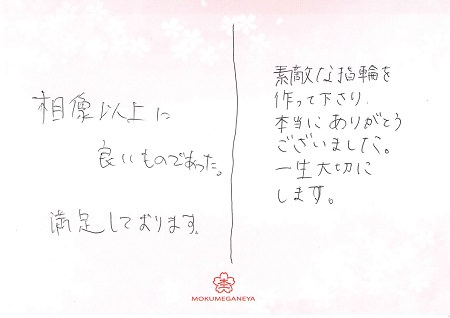 相像以上に
良いものであった。
満足しております。
素敵な指輪を
作って下さり、
本当にありがとう
ございました。
一生大切に
します。
MOKUMEGANEYA